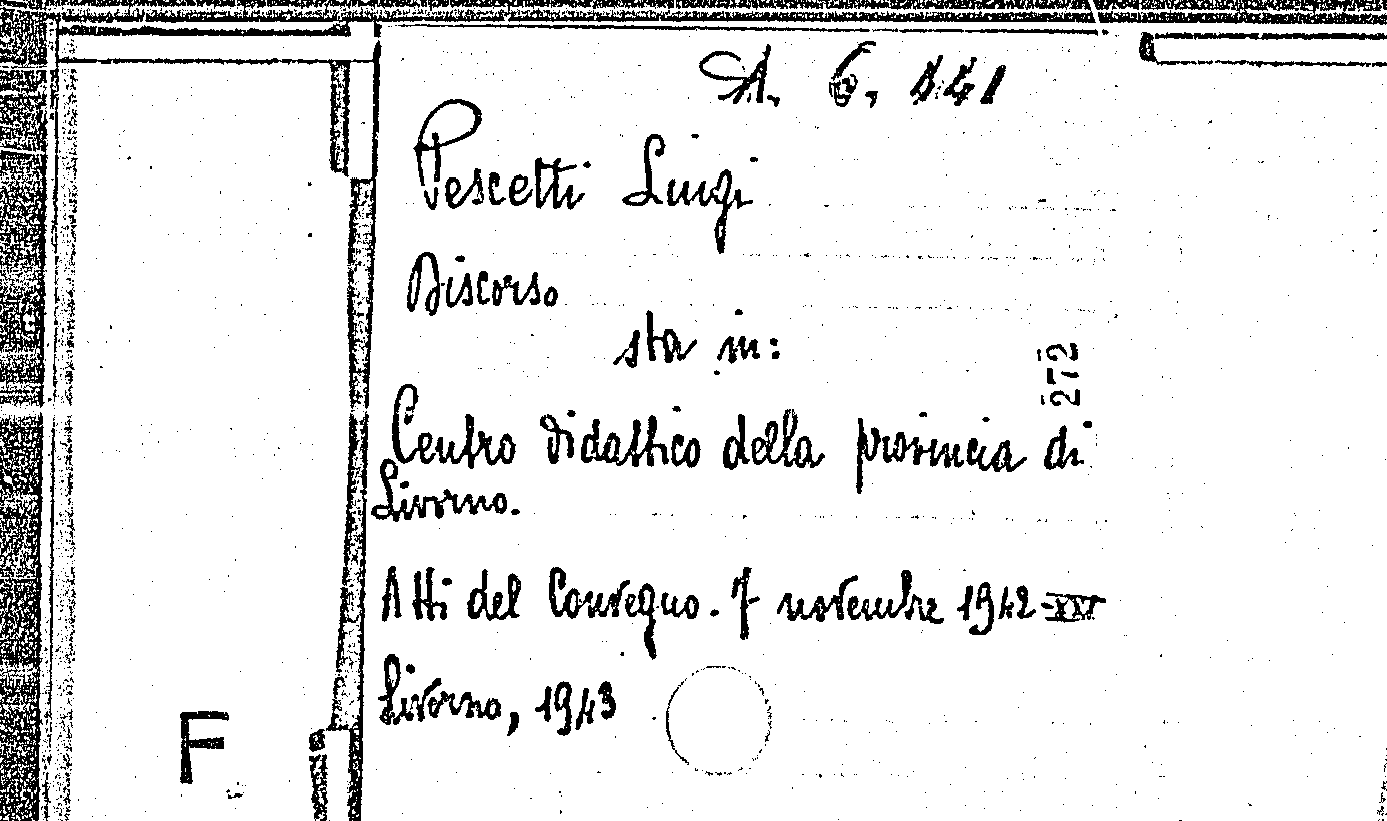 A. 6. 441
Pescetti Luigi
Discorso
sta in:
272
Centro didattico della provincia di
Livorno.
Atti del Convegno. 7 novembre 1942-XXI
Livorno, 1943
F